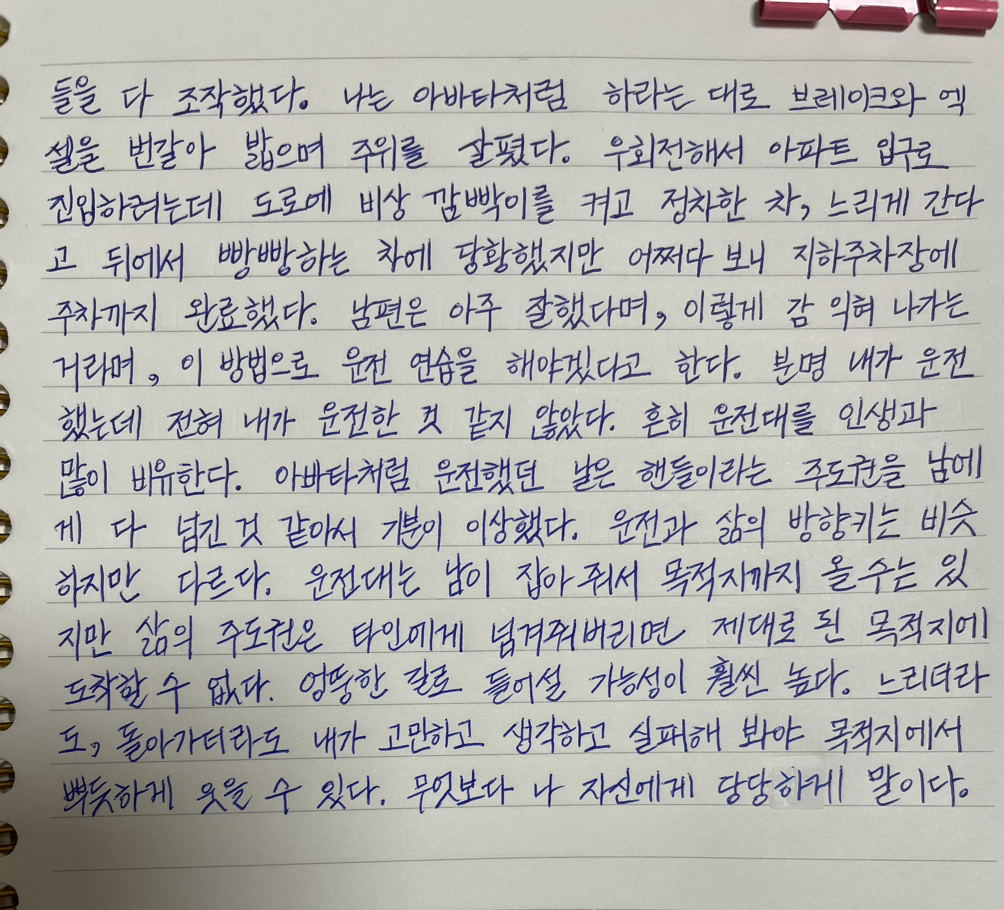 들을 다 조작했다. 나는 아바타처럼 하라는 대로 브레이크와 엑
셀을 번갈아 밟으며 주위를 살폈다. 우회전해서 아파트 입구로
진입하려는데 도로에 비상 깜빡이를 켜고 정차한 차, 느리게 간다
고 뒤에서 빵빵하는 차에 당황했지만 어쩌다 보니 지하주차장에
주차까지 완료했다. 남편은 아주 잘했다며, 이렇게 감 익혀 나가는
거라며, 이 방법으로 운전 연습을 해야겠다고 한다. 분명 내가 운전
했는데 전혀 내가 운전한 것 같지 않았다. 흔히 운전대를 인생과
많이 비유한다. 아바타처럼 운전했던 날은 핸들이라는 주도권을 남에
게 다 넘긴 것 같아서 기분이 이상했다. 운전과 삶의 방향키는 비슷
하지만 다르다. 운전대는 남이 잡아 줘서 목적지까지 올 수는 있
지만 삶의 주도권은 타인에게 넘겨줘버리면 제대로 된 목적지에
도착할 수 없다. 엉뚱한 길로 들어설 가능성이 훨씬 높다. 느리더라
도, 돌아가더라도 내가 고민하고 생각하고 실패해 봐야 목적지에서
뿌듯하게 웃을 수 있다. 무엇보다 나 자신에게 당당하게 말이다.